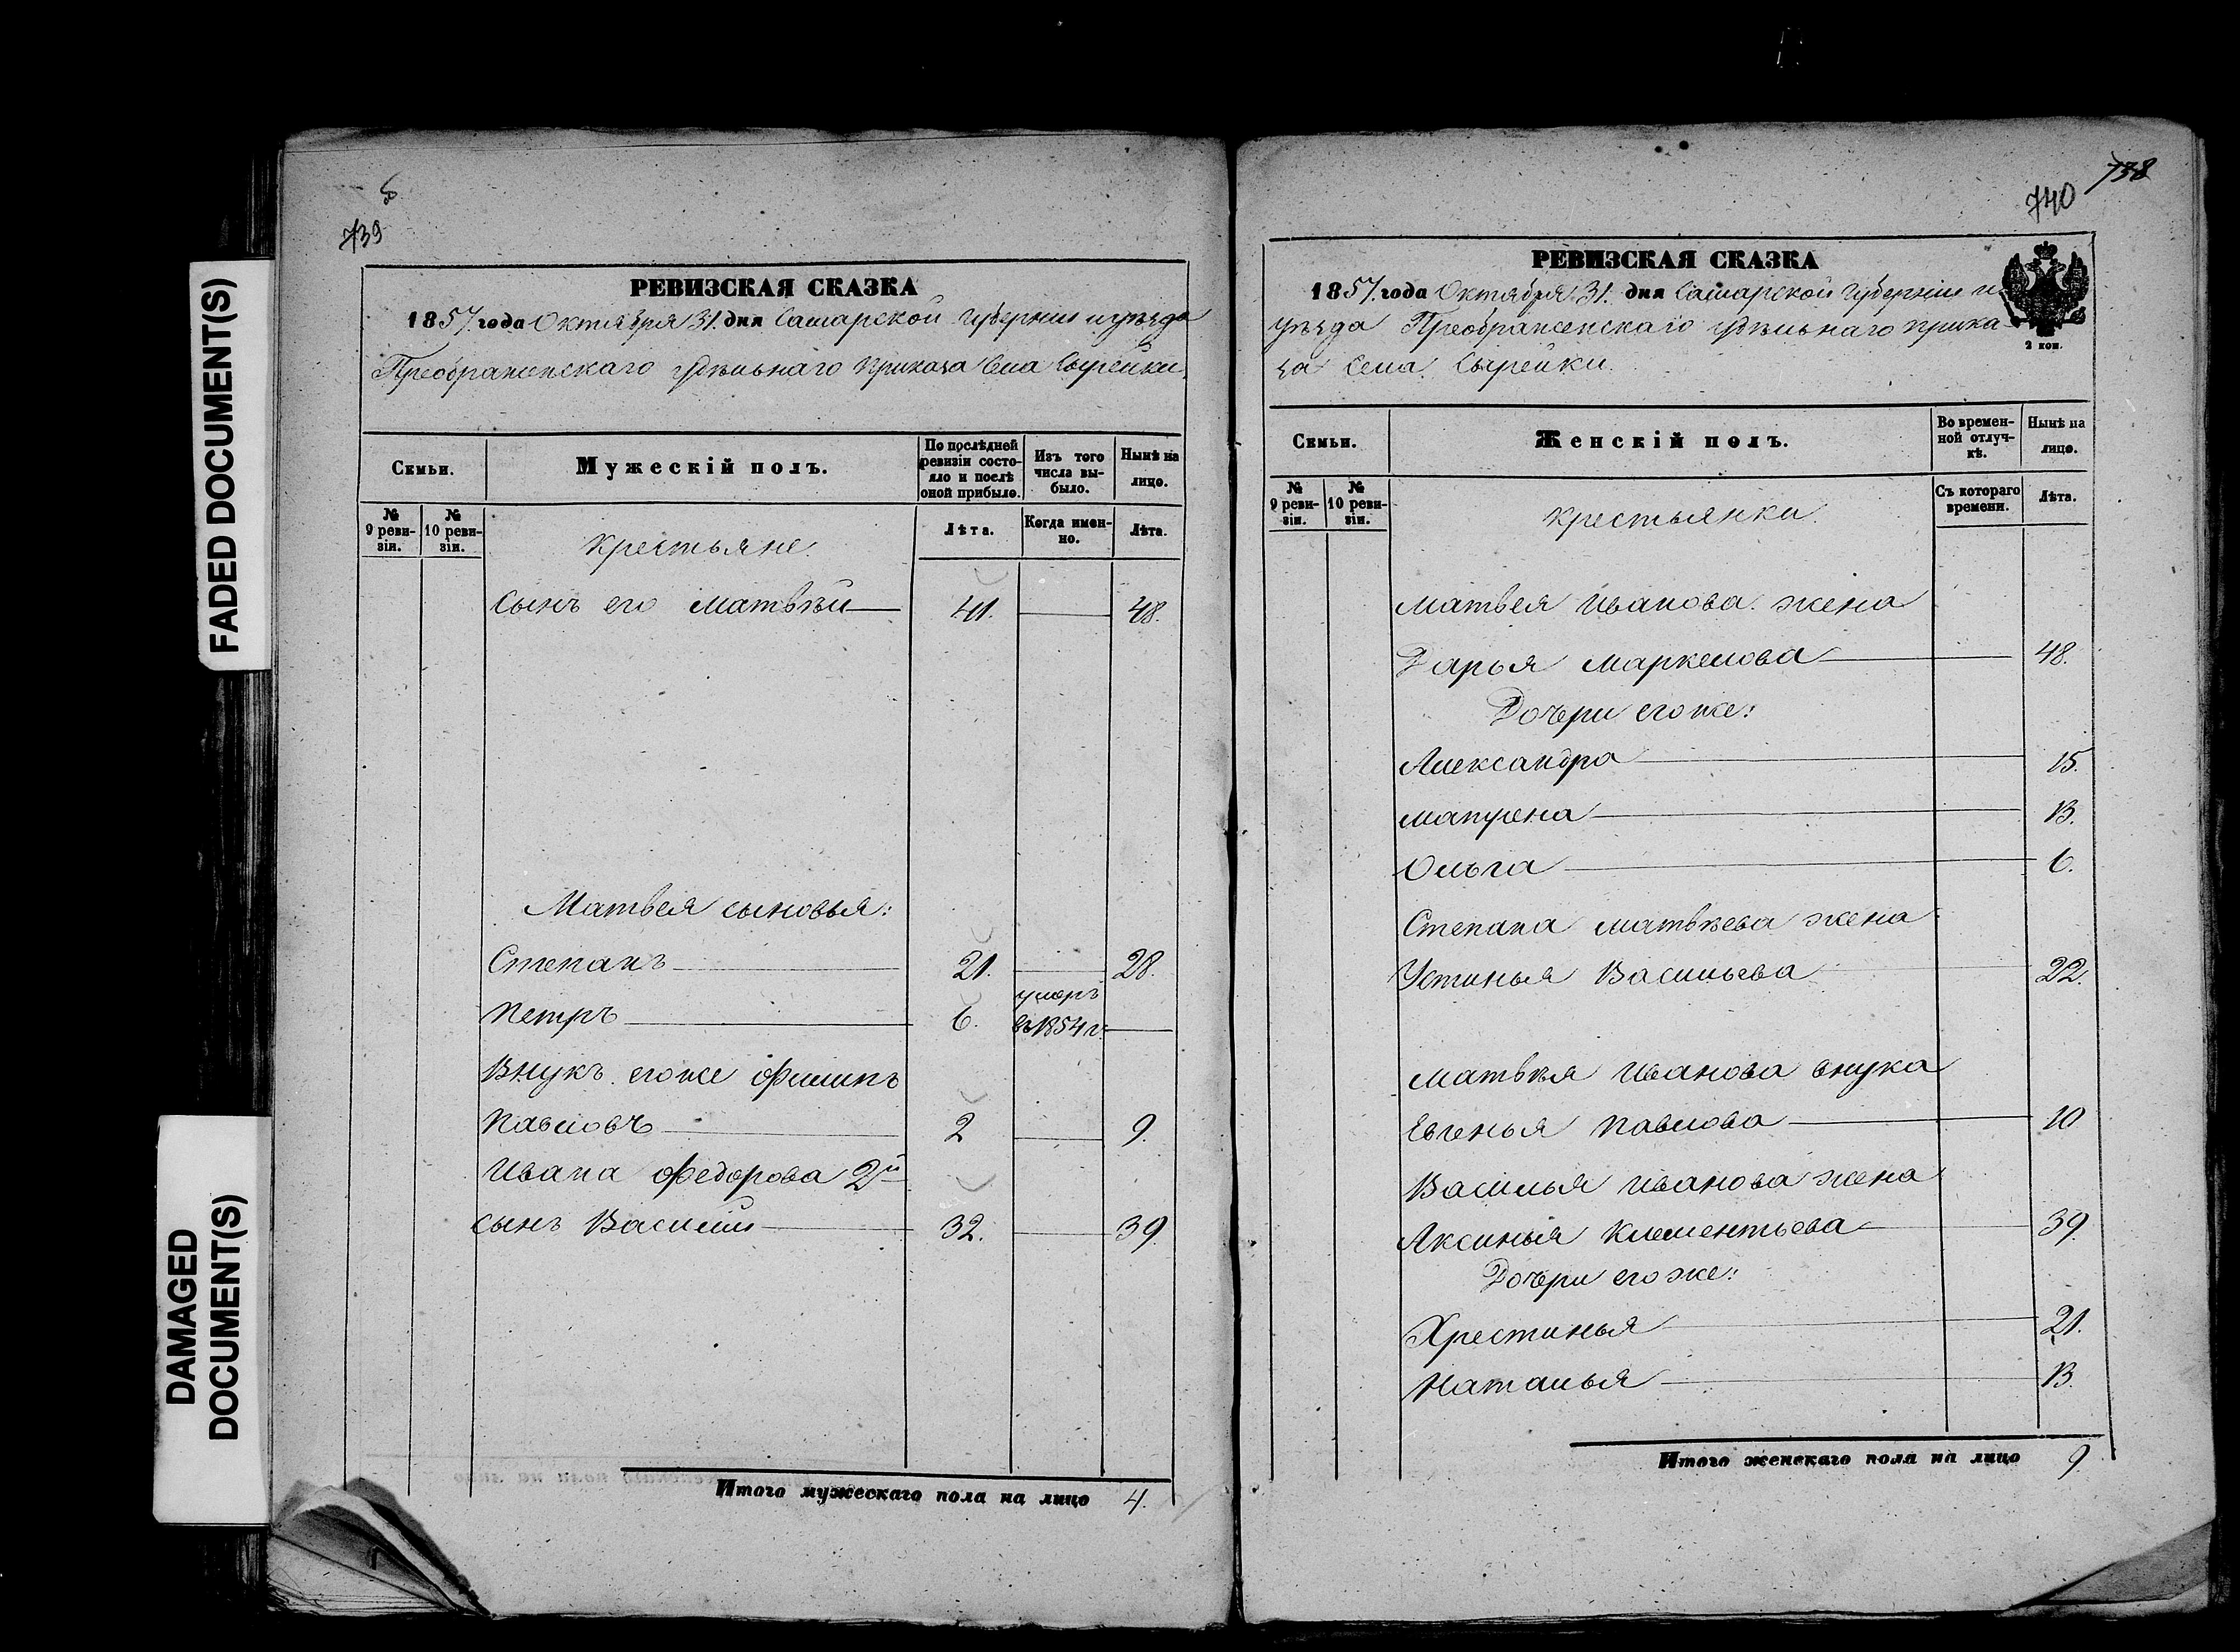 FADED DOCUMENT(S)
DAMAGED
DOCUMENT(S)
739
РЕВИЗСКАЯ СКАЗКА
1857. года Октября 31. дня Самарской Губернии и уѣзда
Преображенскаго удѣльнаго приказа Села Сырейки.
Семьи.
Мужескій полъ.
По послѣдней
ревизіи состо-
яло и послѣ
оной прибыло.
Изъ того
числа вы-
было.
Нынѣ на
лицо.
№
9 реви-
зіи.
№
10 реви-
зіи.
Крестьяне.
Лѣта.
Когда имен-
но.
Лѣта.
Сынъ его Матвѣй 41. 48.
Матвея сыновья:
Степанъ 21. 28.
Петръ 6. умеръ
въ 1854 г.
Внукъ его же Филипъ
Павловъ 2 9.
Ивана Федорова 2й
сынъ Василій 32. 39.
Итого мужескаго пола на лицо 4.
738
740
РЕВИЗСКАЯ СКАЗКА
1857. года Октября 31. дня Самарской Губерніи и
уѣзда Преображенскаго удѣльнаго прика
за Села Сырейки.
2 коп.
Семьи.
Женскій полъ.
Во времен-
ной отлуч-
кѣ.
Нынѣ на
лицо.
№
9 реви-
зіи.
№
10 реви-
зіи.
Крестьянки.
Съ котораго
времени.
Лѣта.
Матвея Иванова жена
Дарья Маркелова 48.
Дочери его же:
Александра 15.
Матрена 13.
Ольга 6.
Степана Матвѣева жена
Устинья Васильева 22.
Матвѣя Иванова внука
Евгенья Павлова 10
Василья Иванова жена
Аксинья Клементьева 39.
Дочери его же:
Хрестинья 21.
Наталья 13.
Итого женскаго пола на лицо 9.